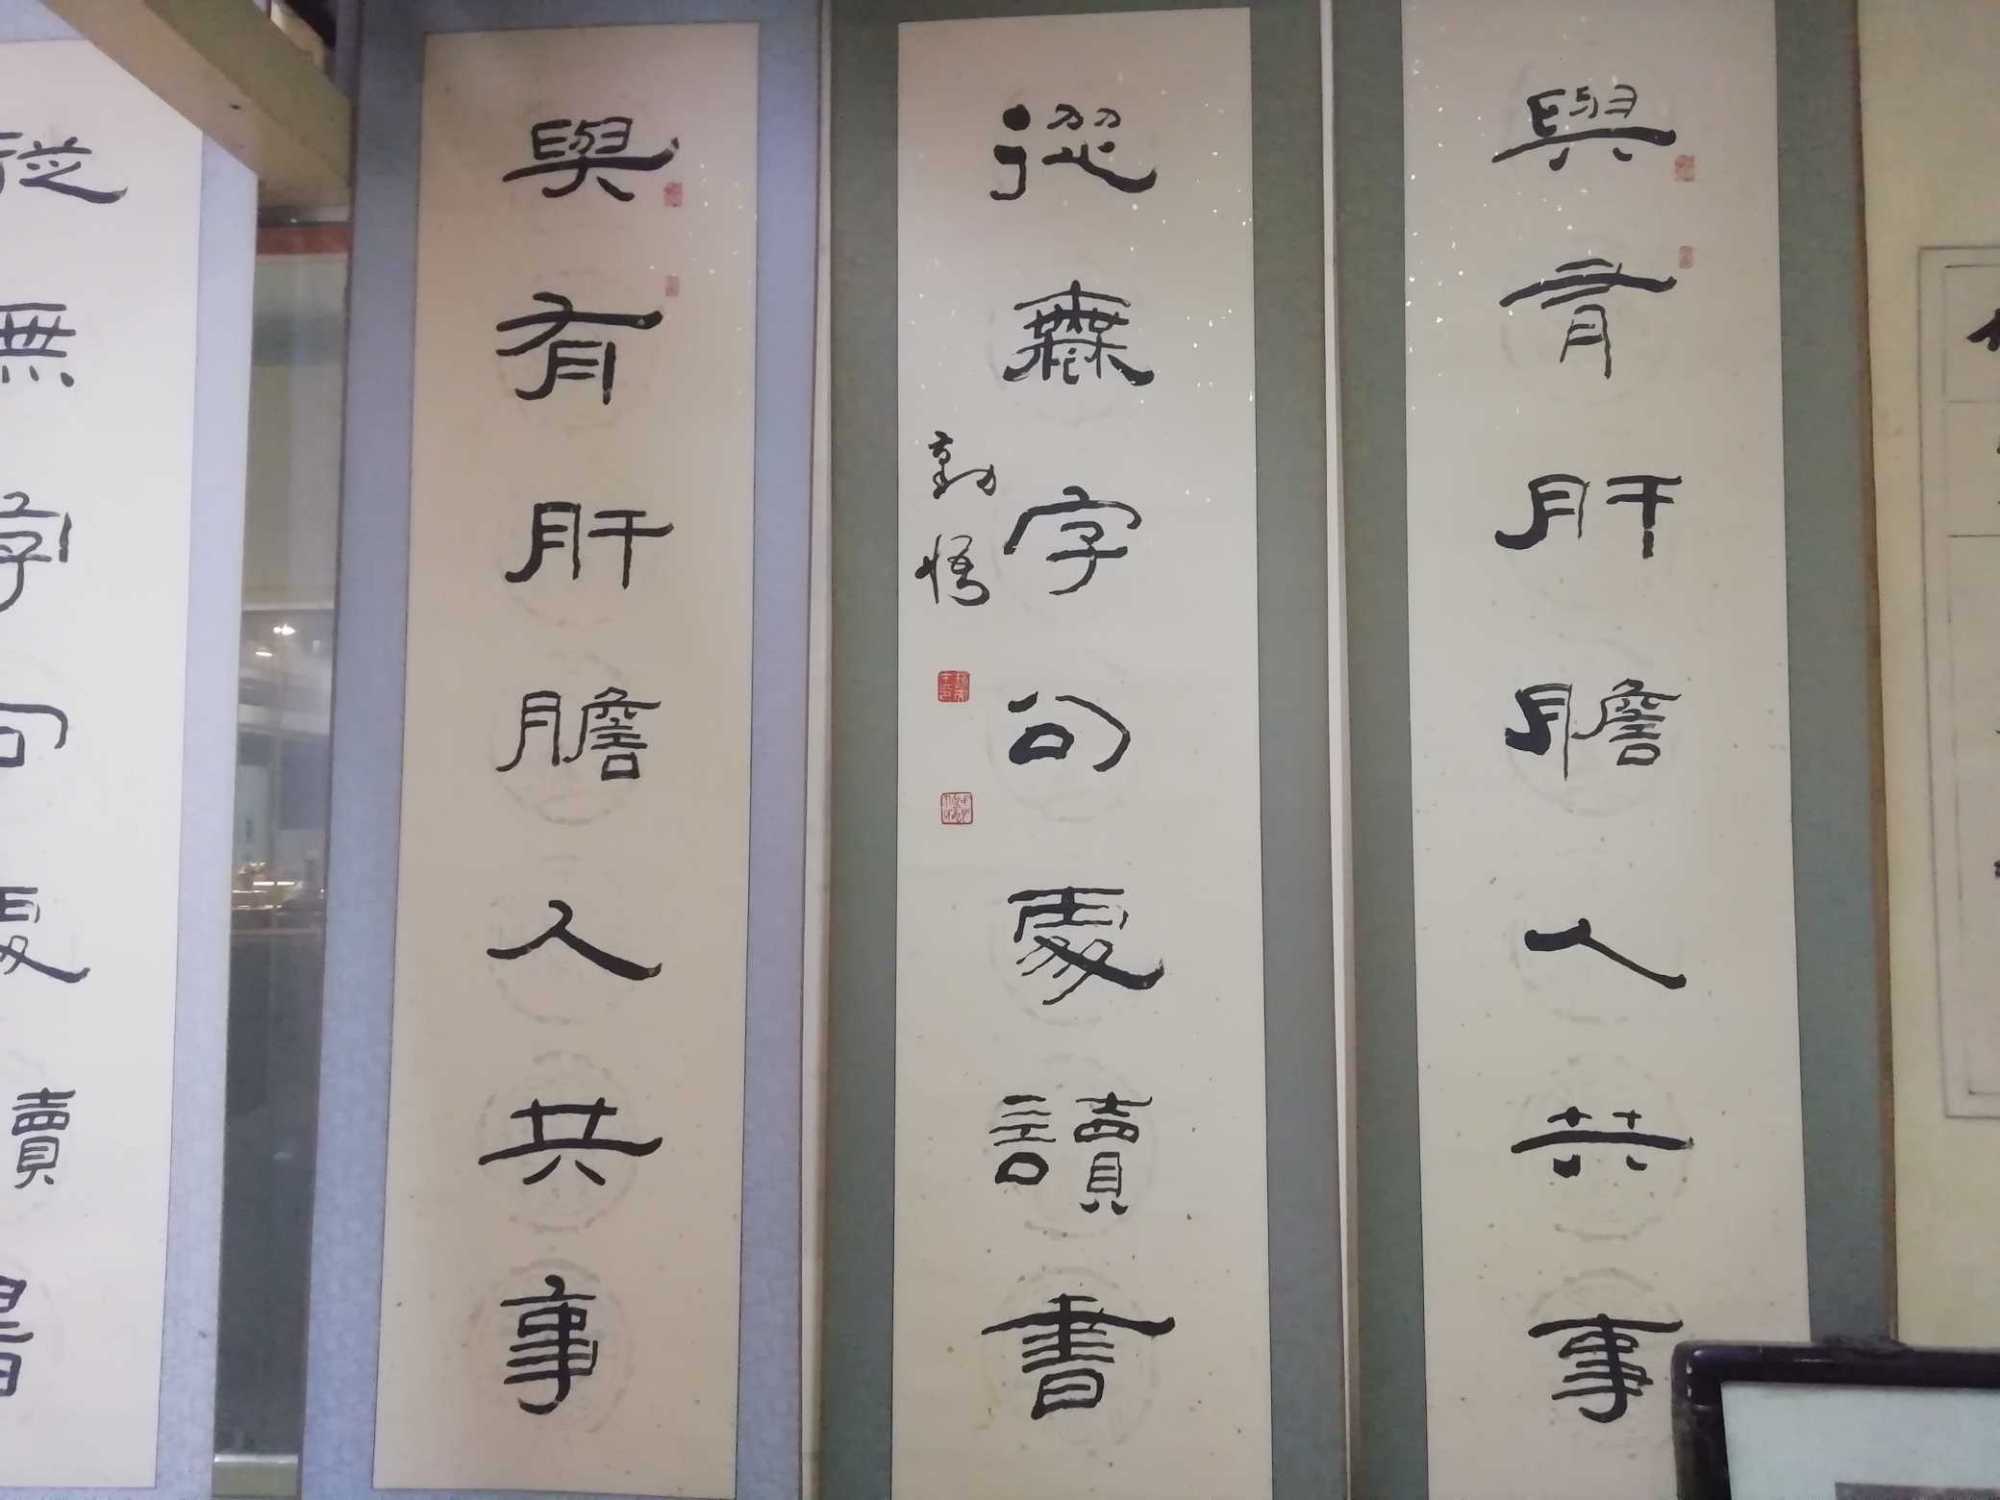 與有肝膽人共事
從無字句處讀書
勤悟
與有肝膽人共事
從無字句處讀書